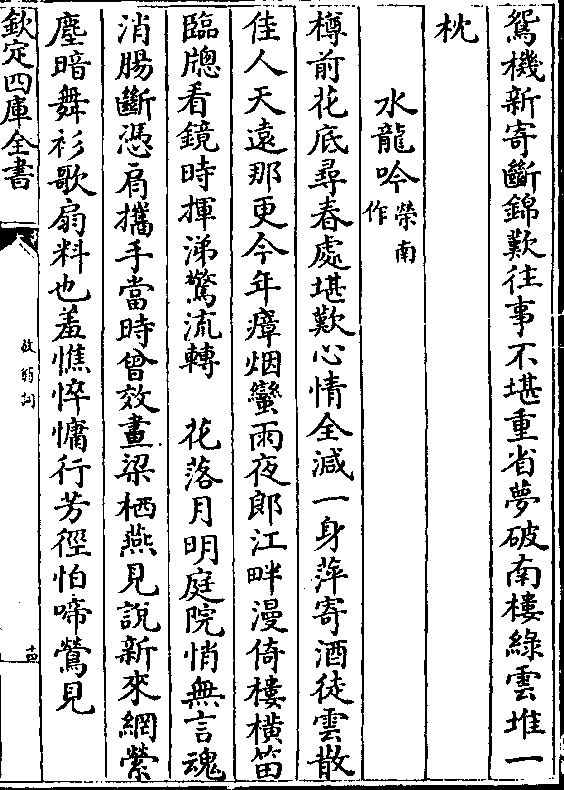 鴛機新寄斷錦歎往事不堪重省夢破南樓綠雲堆一
枕
水龍吟榮南
作
樽前花底尋春處堪歎心情全減一身萍寄酒徒雲散
佳人天遠那更今年瘴烟蠻雨夜郎江畔漫倚樓橫笛
臨牕看鏡時揮涕驚流轉　花落月明庭院悄無言魂
消腸斷憑肩攜手當時曾效畫梁栖燕見說新來網縈
塵暗舞衫歌扇料也羞憔悴慵行芳徑怕啼鶯見
欽定四庫全書
放翁詞
十四